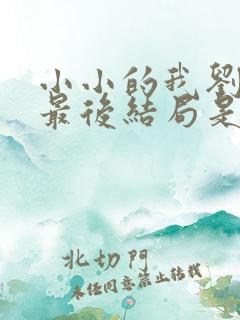 小小的我劉
最後結局是
北切門
未経同意禁止轉載